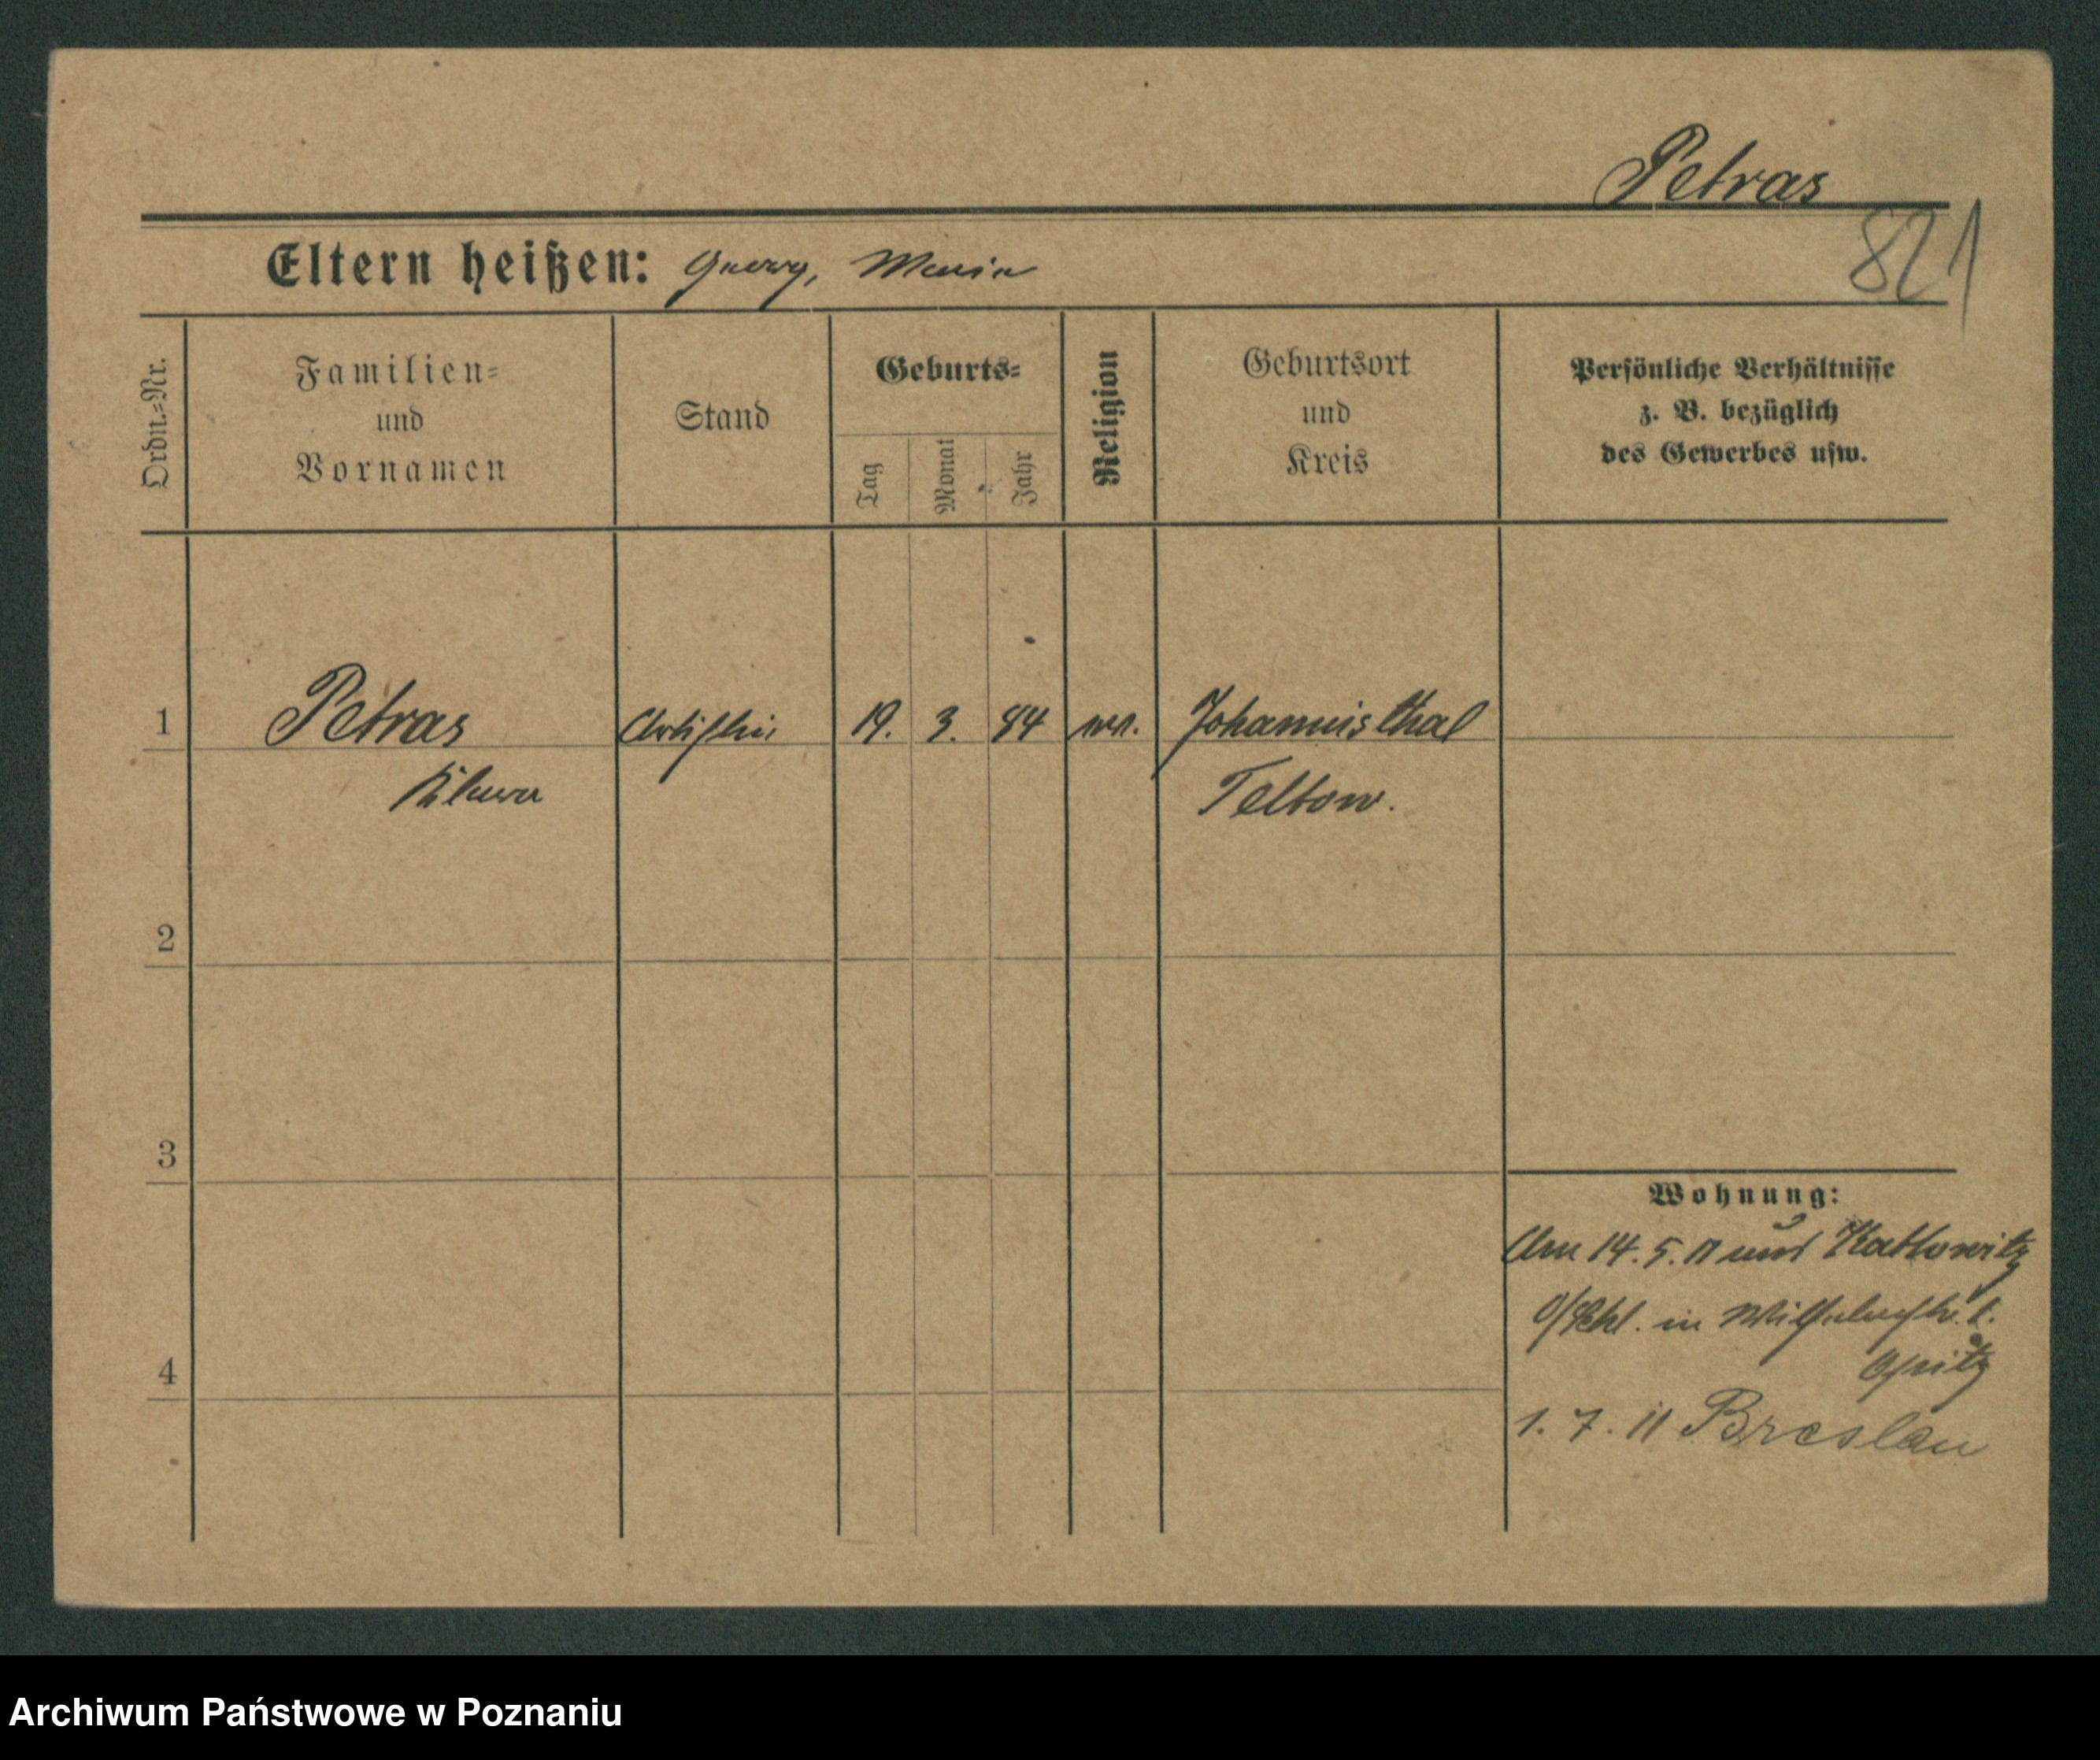 Petras
821
Eltern heißen: Georg, Maria
Ordn.-Nr.
Familien-
und
Vornamen
Stand
Geburts-
Tag
Monat
Jahr
Religion
Geburtsort
und
Kreis
Persönliche Verhältnisse
z. B. bezüglich
des Gewerbes usw.
1 Petras Artistin 19. 3. 84 Johannisthal
Teltow.
2
3
4
Wohnung:
Am 14. 5. 11 aus Kattowitz
O/Schl. in Wilhelmstr.
1. 7. 11 Breslau
Archiwum Państwowe w Poznaniu